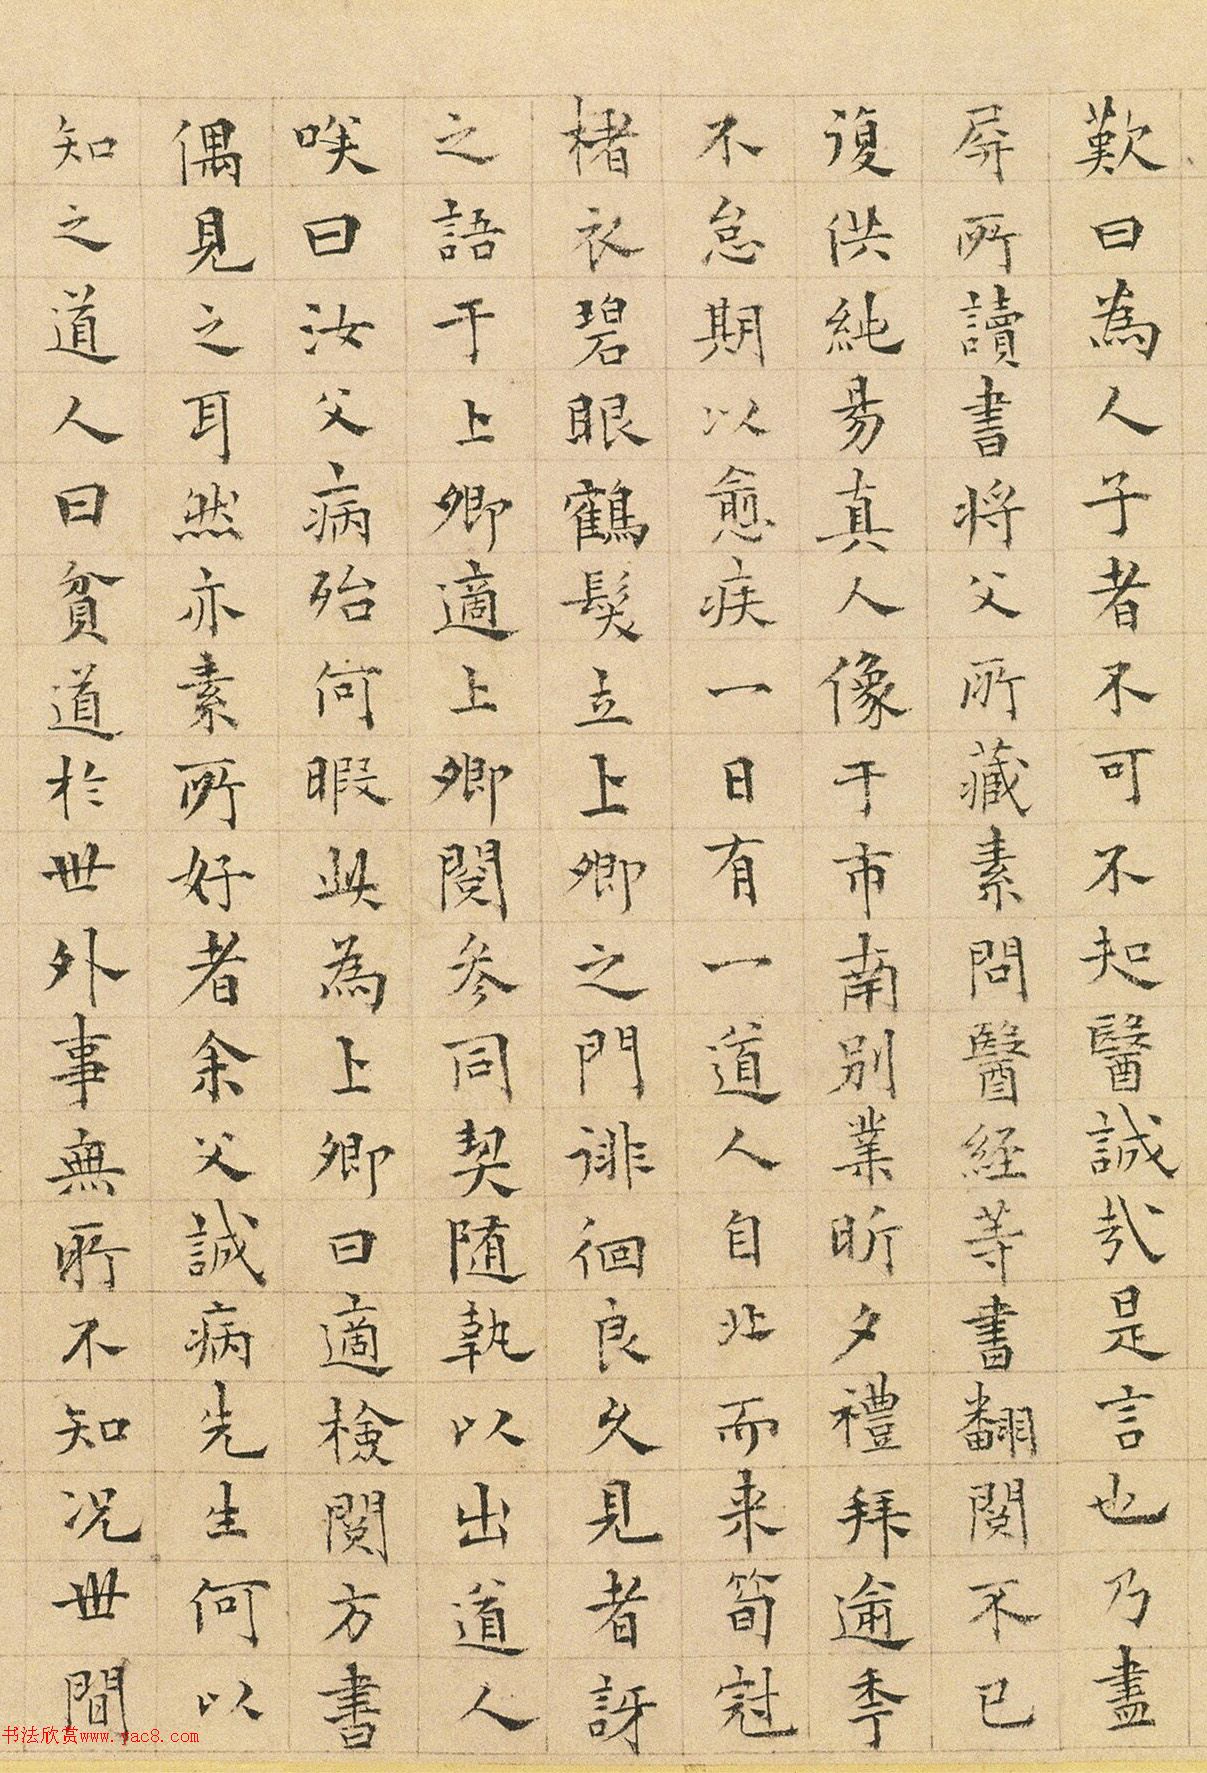 歎曰為人子者不可不知醫誠哉是言也乃盡
屏所讀書將父所藏素問醫經等書翻閱不已
復供純昜真人像于市南別業昕夕禮拜逾季
不怠期以愈疾一日有一道人自北而来筍冠
楮衣碧眼鶴髮立上卿之門誹徊良久見者訝
之語于上卿適上卿閱參同契随執以出道人
唉曰汝父病殆何暇此為上卿曰適檢閱方書
偶見之耳然亦素所好者余父誠病先生何以
知之道人曰貧道於世外事無所不知況世間
书法欣赏www.yac8.com